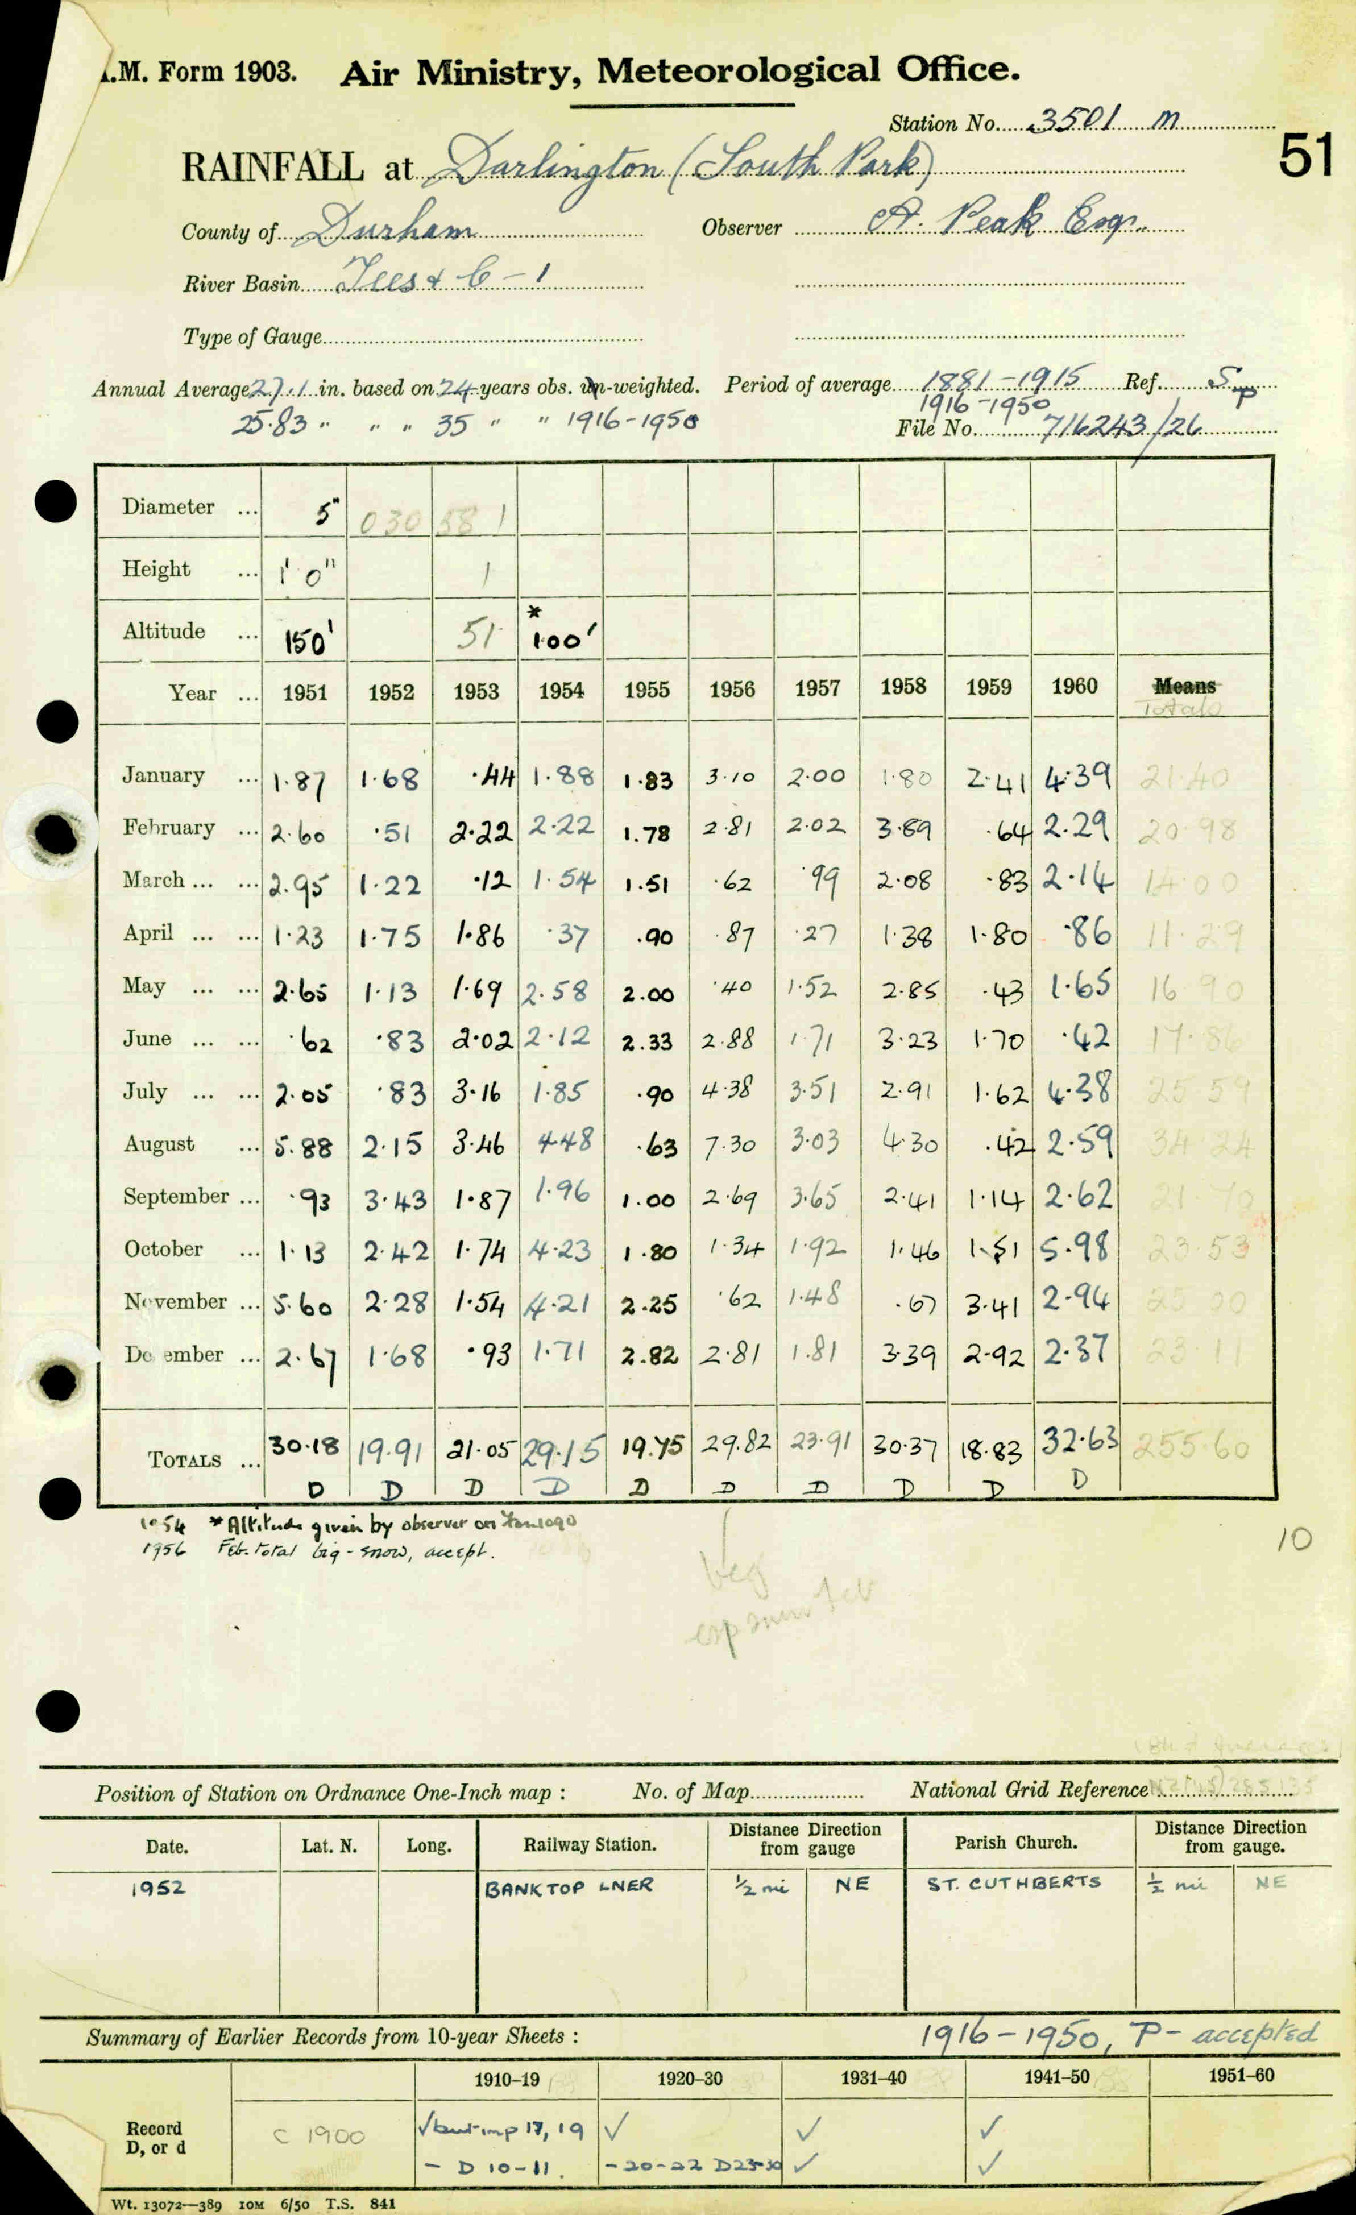 A.M. Form 1903. Air Ministry, Meteorological Office.
Station No. 3501 m
51
RAINFALL at Darlington (South Park)
County of Durham Observer A. Peak Esq.
River Basin Tees & C - 1
Type of Gauge
Annual Average 27.1 in. based on 24 years obs. un-weighted. Period of average 1881-1915 Ref. Sp
25.83 " " " 35 " " 1916-1950 1916-1950
File No. 716243/26
Diameter ... 5" 030 581
Height ... 1' 0" 1
Altitude ... 150' 51 * 100'
Year ... 1951 1952 1953 1954 1955 1956 1957 1958 1959 1960 Means
Totals
January ... 1.87 1.68 .44 1.88 1.83 3.10 2.00 1.80 2.41 4.39 21.40
February ... 2.60 .51 2.22 2.22 1.78 2.81 2.02 3.89 .64 2.29 20.98
March ... ... 2.95 1.22 .12 1.54 1.51 .62 .99 2.08 .83 2.14 14.00
April ... ... 1.23 1.75 1.86 .37 .90 .87 .27 1.38 1.80 .86 11.29
May ... ... 2.65 1.13 1.69 2.58 2.00 .40 1.52 2.85 .43 1.65 16.90
June ... ... .62 .83 2.02 2.12 2.33 2.88 1.71 3.23 1.70 .42 17.86
July ... ... 2.05 .83 3.16 1.85 .90 4.38 3.51 2.91 1.62 4.38 25.59
August ... 5.88 2.15 3.46 4.48 .63 7.30 3.03 4.30 .42 2.59 34.24
September ... .93 3.43 1.87 1.96 1.00 2.69 3.65 2.41 1.14 2.62 21.70
October ... 1.13 2.42 1.74 4.23 1.80 1.34 1.92 1.46 1.51 5.98 23.53
November ... 5.60 2.28 1.54 4.21 2.25 .62 1.48 .67 3.41 2.94 25.00
December ... 2.67 1.68 .93 1.71 2.82 2.81 1.81 3.39 2.92 2.37 23.11
TOTALS ... 30.18 19.91 21.05 29.15 19.75 29.82 23.91 30.37 18.83 32.63 255.60
D D D D D D D D D D
1954 * Altitude given by observer on Form 1090
1956 Feb. total big - snow, accept.
10
Position of Station on Ordnance One-Inch map : No. of Map National Grid Reference
Date. Lat. N. Long. Railway Station. Distance Direction from gauge Parish Church. Distance Direction from gauge.
1952 BANKTOP LNER ½ mi NE ST. CUTHBERTS ½ mi NE
Summary of Earlier Records from 10-year Sheets : 1916-1950, P- accepted
1910-19 1920-30 1931-40 1941-50 1951-60
Record D, or d C 1900 √ but imp 17, 19 √ √ √
- D 10-11. -20-22 D23-30 √ √
Wt. 13072—389 10M 6/50 T.S. 841